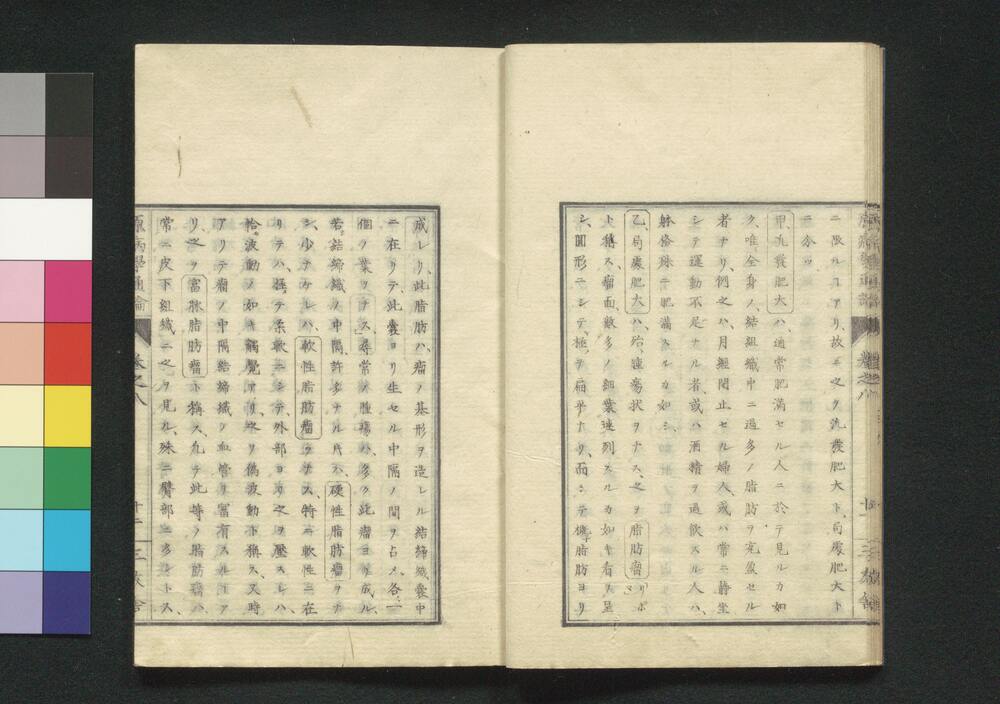 ニ限ルコアリ、故ニ之ヲ汎發肥大ト、局處肥大ト
ニ分ツ
甲、汎發肥大ハ、通常肥滿セル人ニ於テ見ルカ如
ク、唯全身ノ結組織中ニ過多ノ脂肪ヲ充盈セル
者ナリ、例之ハ、月經閉止セル婦人、或ハ常ニ靜坐
シテ運動不足ナル者、或ハ酒精ヲ過飮スル人ハ、
躰格殊ニ肥滿スルカ如シ、
乙、局處肥大ハ、殆腫瘍狀ヲナス、之ヲ脂肪瘤「リポ
ト稱ス、瘤面數多ノ細葉連列スルカ如キ看ヲ呈
シ、圓形ニシテ、極テ扁平ナリ、而シテ 脂肪ヨリ
成レリ、此脂肪ハ、瘤ノ基形ヲ造レル結締織囊中
ニ在リテ、此囊ヨリ生セル中隔ノ間ヲ占メ、各一
個ノ葉ヲナス、尋常ノ腫瘍ハ、多ク此瘤ヨリ成ル、
若結締織ノ中隔、許多ナル片ハ、硬性脂肪瘤ヲナ
シ、少ナカレハ、軟性脂肪瘤ヲナス、特ニ軟性ニ在
リテハ、極テ柔軟ニシテ、外部ヨリ之ヲ壓スレハ
恰波動ノ如キ觸覺アリ、之ヲ僞波動ト稱ス、又時
アリテ瘤ノ中隔結締織ノ血管ニ富有スルコア
リ、之ヲ富脉脂肪瘤ト稱ス、凡テ此等ノ脂肪瘤ハ、
常ニ皮下組織ニ之ヲ見ル、殊ニ臀部ニ多シトス、
原病學通論 卷之八 十二 三友舍